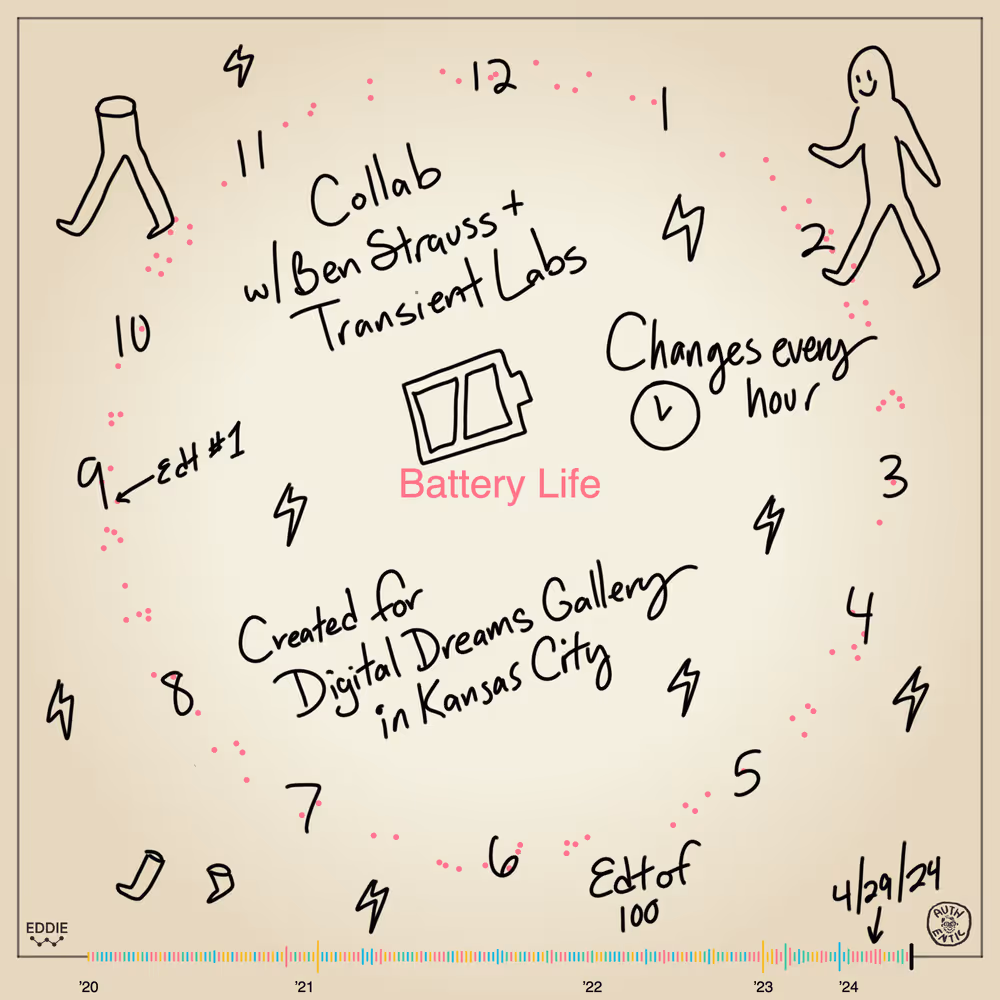 12
1
11
Collab
w/Ben Strauss +
Transient Labs
2
10
Changes every
hour
9
Edt #1
Battery Life
3
Created for
Digital Dreams Gallery
in Kansas City
4
8
5
7
6
Edt of
100
4/29/24
EDDIE
AUTH
ENTIC
'20
'21
'22
'23
'24